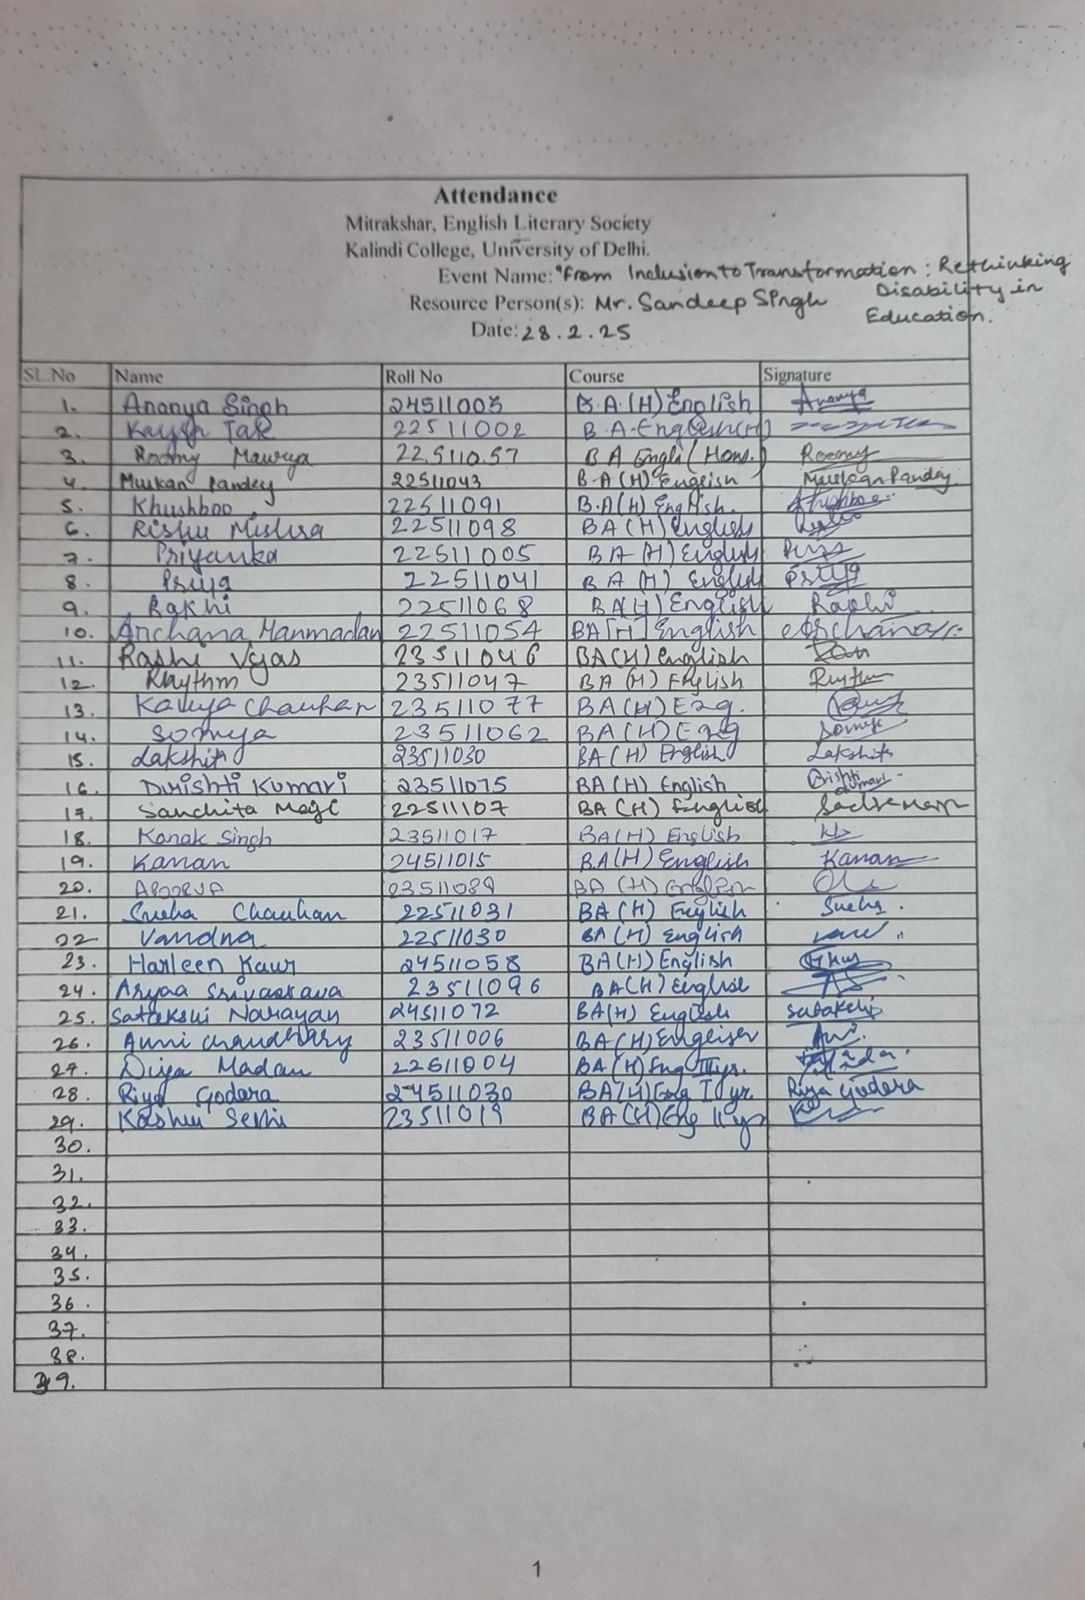 Attendance
Mitrakshar, English Literary Society
Kalindi College, University of Delhi.
Event Name: "From Inclusion to Transformation : Rethinking
Disability in
Resource Person(s): Mr. Sandeep Singh
Education.
Date: 28.2.25
SL.No Name Roll No Course Signature
1. Ananya Singh 24511003 B.A.(H) English Ananya
2. Tak 22511002 B.A. English(H)
3. Roomy Maurya 22511057 B A Engli (Hons.) Roomy
4. Muskan Pandey 22511043 B.A (H) English Muskan Pandey
5. Khushboo 22511091 B.A(H) English. Khushboo
6. Rishu Mishra 22511098 BA (H) English
7. Priyanka 22511005 BA (H) English
8. Priya 22511041 BA (H) English Priya
9. Rakhi 22511068 BA(H) English Rakhi
10. Archana Manmadan 22511054 BA[H] English Archana
11. Rashi Vyas 23511046 BA(H) English
12. Rhythm 23511047 BA (H) English Rhythm
13. Kavya Chauhan 23511077 BA(H) Eng.
14. Somya 23511062 BA(H) Eng Somya
15. Lakshita 23511030 BA (H) English Lakshita
16. Drishti Kumari 23511075 BA (H) English Drishti Kumari
17. Sanchita 22511107 BA (H) English
18. Kanak Singh 23511017 BA(H) English
19. Kanan 24511015 B.A(H) English Kanan
20. Apoorva BA (H) English
21. Sneha Chauhan 22511031 BA (H) English Sneha.
22 Vandna 22511030 BA (H) English
23. Harleen Kaur 24511058 BA(H) English
24. Aryaa Srivastava 23511096 BA(H) English
25. Satakshi Narayan 24511072 BA(H) English Satakshi
26. Anni Chaudhary 23511006 BA(H) English
27. Diya Madan 22511004 BA(H) Eng III yr.
28. Riya Godara 24511030 BA(H) Eng I yr. Riya Godara
29. Kashu Sethi 23511019 BA(H) Eng II yr
30.
31.
32.
33.
34.
35.
36.
37.
38.
39.
1